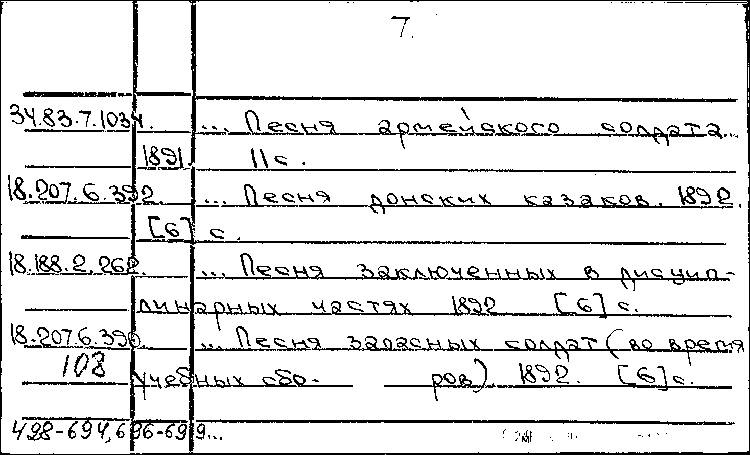 7.
34.83.7.1034. ... Песня армейского солдата...
1891. 11 с.
18.207.6.392. ... Песня донских казаков. 1892.
[6] с.
18.188.2.262. ... Песня заключенных в дисцип-
линарных частях 1892 [6] с.
18.207.6.390. ... Песня запасных солдат (во время
108 учебных сбо- ров) 1892. [6] с.
498-694, 696-699...